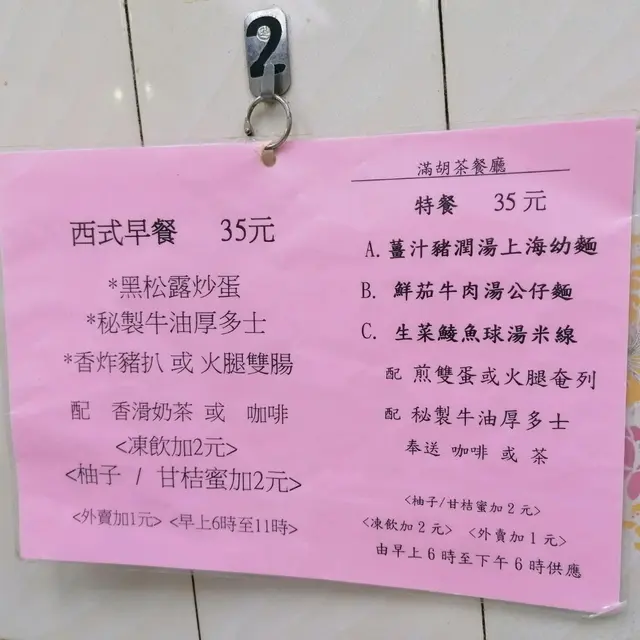 2
西式早餐 35元
*黑松露炒蛋
*秘製牛油厚多士
*香炸豬扒 或 火腿雙腸
配 香滑奶茶 或 咖啡
<凍飲加2元>
<柚子 / 甘桔蜜加2元>
<外賣加1元> <早上6時至11時>
滿胡茶餐廳
特餐 35元
A. 薑汁豬潤湯上海幼麵
B. 鮮茄牛肉湯公仔麵
C. 生菜鯪魚球湯米線
配 煎雙蛋或火腿奄列
配 秘製牛油厚多士
奉送 咖啡 或 茶
<柚子/甘桔蜜加2元>
<凍飲加2元> <外賣加1元>
由早上6時至下午6時供應